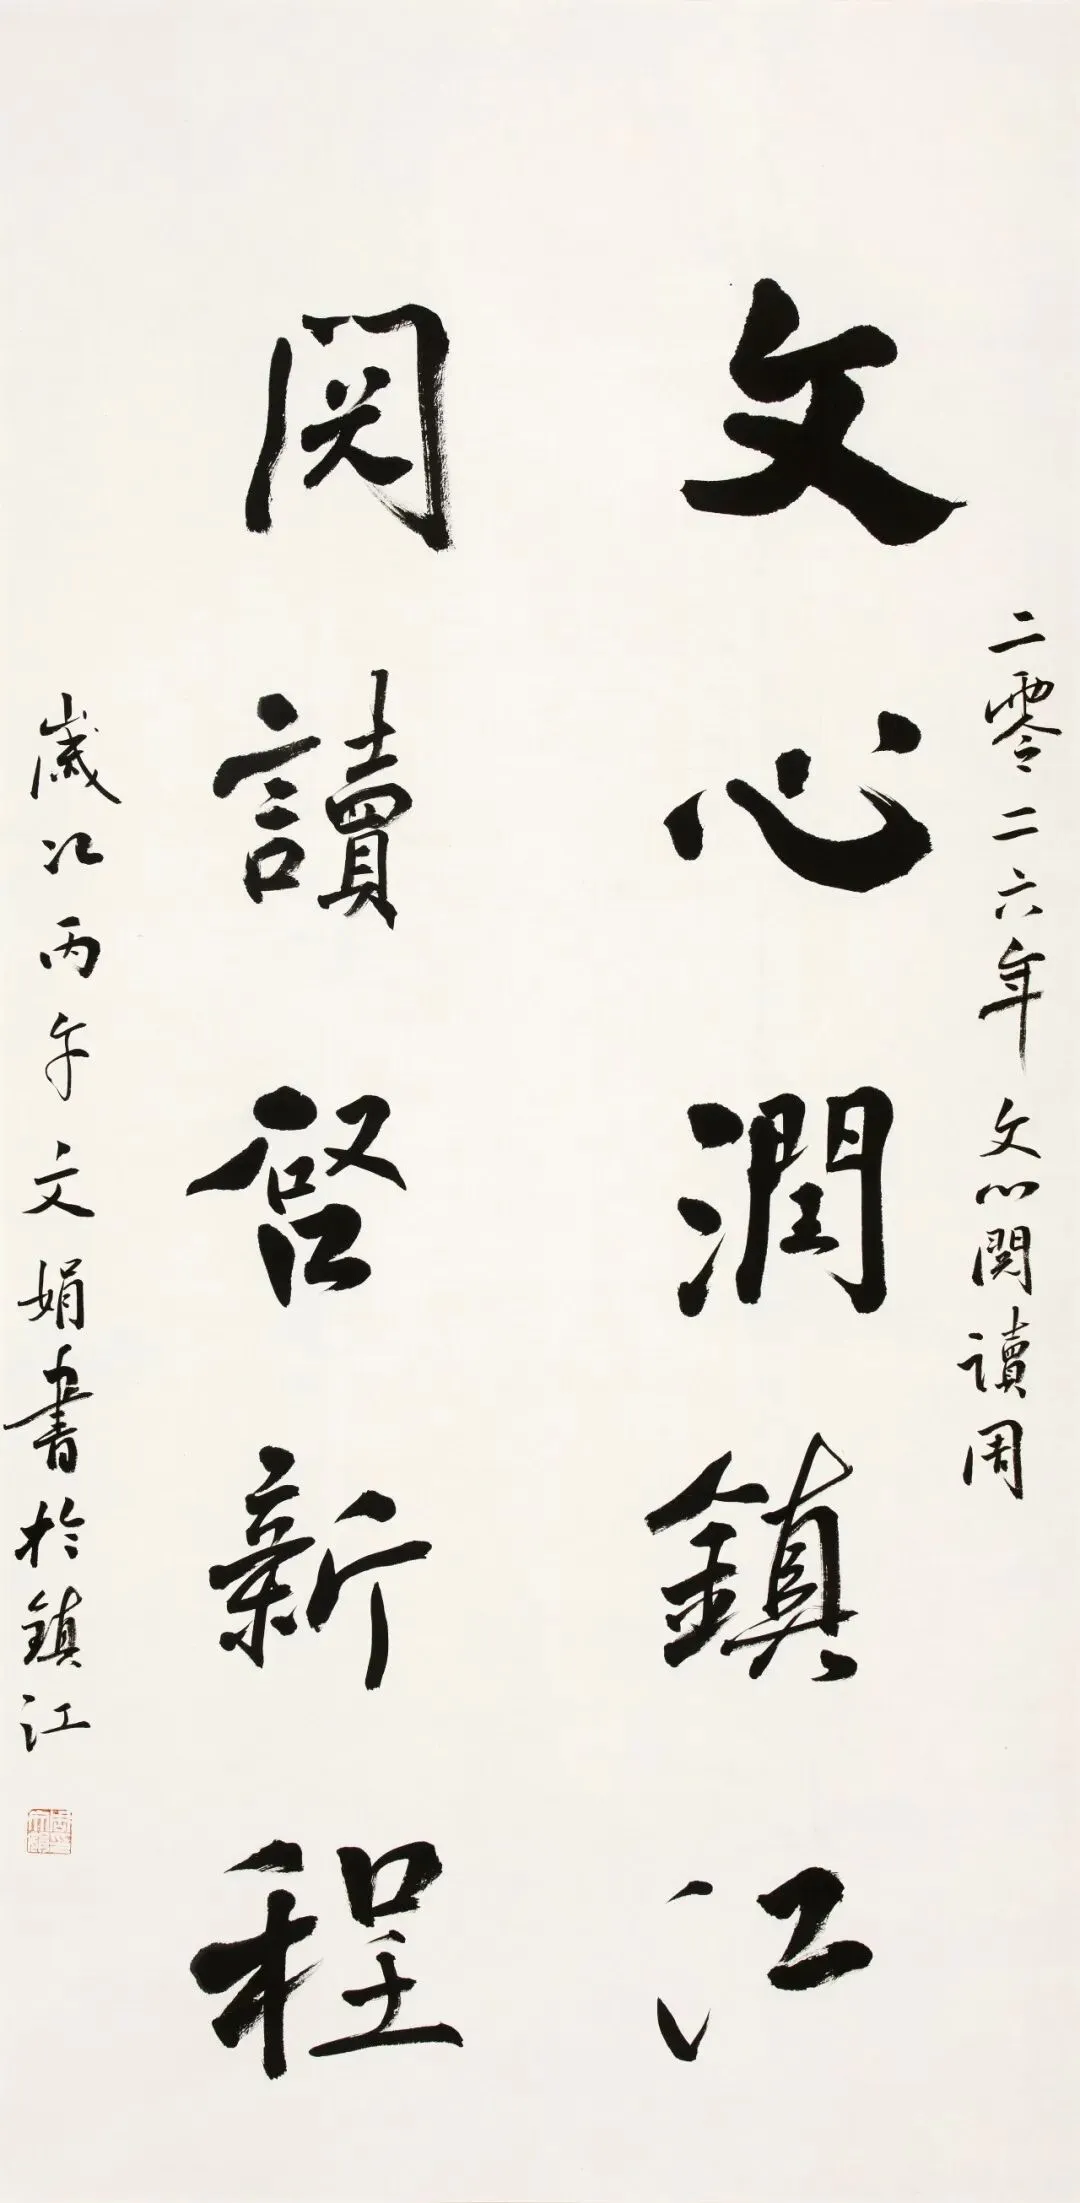 二零二六年文心閱讀周
文心潤鎮江
閱讀啓新程
歲次丙午文娟書於鎮江